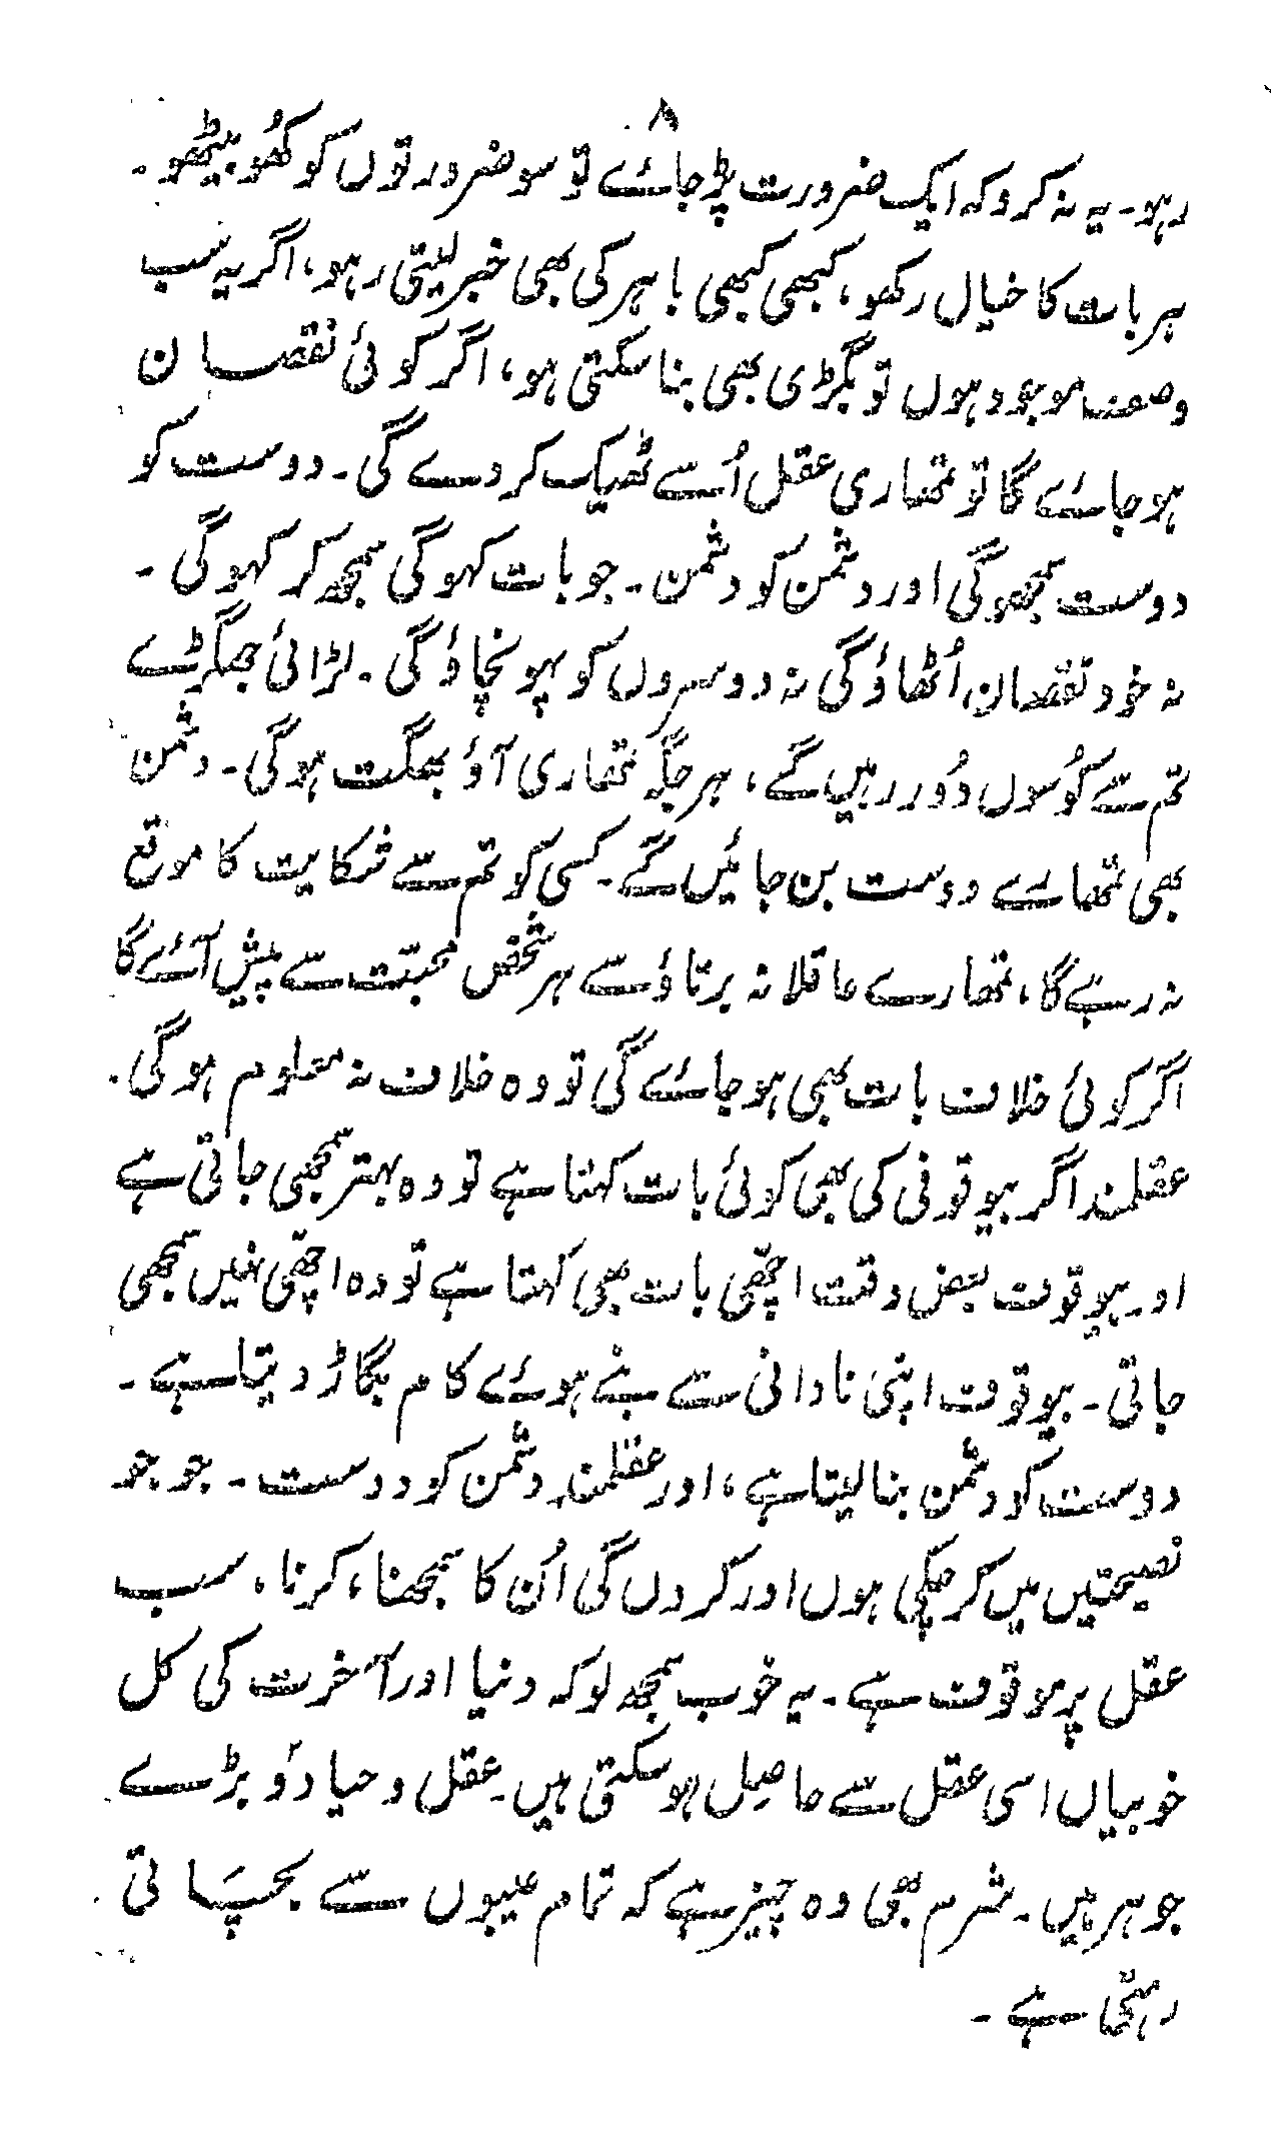 ۸
رہو۔ یہ نہ کرو کہ ایک ضرورت پڑ جائے تو سو ضرورتوں کو کھُو بیٹھو۔
ہر بات کا خیال رکھو، کبھی کبھی باہر کی بھی خبر لیتی رہو، اگر یہ سب
وصف موجود ہوں تو بگڑی بھی بنا سکتی ہو، اگر کوئی نقصان
ہو جائے گا تو تمھاری عقل اُسے ٹھیک کر دے گی۔ دوست کو
دوست سمجھو گی اور دشمن کو دشمن۔ جو بات کہو گی سمجھ کر کہو گی۔
نہ خود نقصان اُٹھاؤ گی نہ دوسروں کو پہونچاؤ گی۔ لڑائی جھگڑے
تم سے کوُسوں دُور رہیں گے، ہر جگہ تمھاری آؤ بھگت ہو گی۔ دشمن
بھی تمھارے دوست بن جائیں گے۔ کسی کو تم سے شکایت کا موقع
نہ رہے گا، تمھارے عاقلانہ برتاؤ سے ہر شخص محبّت سے پیش آئے گا
اگر کوئی خلاف بات بھی ہو جائے گی تو وہ خلاف نہ معلوم ہو گی۔
عقلمند اگر بیوقوفی کی بھی کوئی بات کہتا ہے تو وہ بہتر سمجھی جاتی ہے
اور بیوقوف بعض وقت اچھّی بات بھی کہتا ہے تو وہ اچھّی نہیں سمجھی
جاتی۔ بیوقوف اپنی نادانی سے بنے ہوئے کام بگاڑ دیتا ہے۔
دوست کو دشمن بنا لیتا ہے، اور عقلمند دشمن کو دوست۔ جو جو
نصیحتیں میں کر چکی ہوں اور کروں گی اُن کا سمجھنا، کرنا، سب
عقل پر موقوف ہے۔ یہ خوب سمجھ لو کہ دنیا اور آخرت کی کل
خوبیاں اسی عقل سے حاصِل ہو سکتی ہیں۔ عقل و حیا دَو بڑے
جوہر ہیں۔ شرم بھی وہ چیز ہے کہ تمام عیبوں سے بچَاتی
رہتی ہے۔